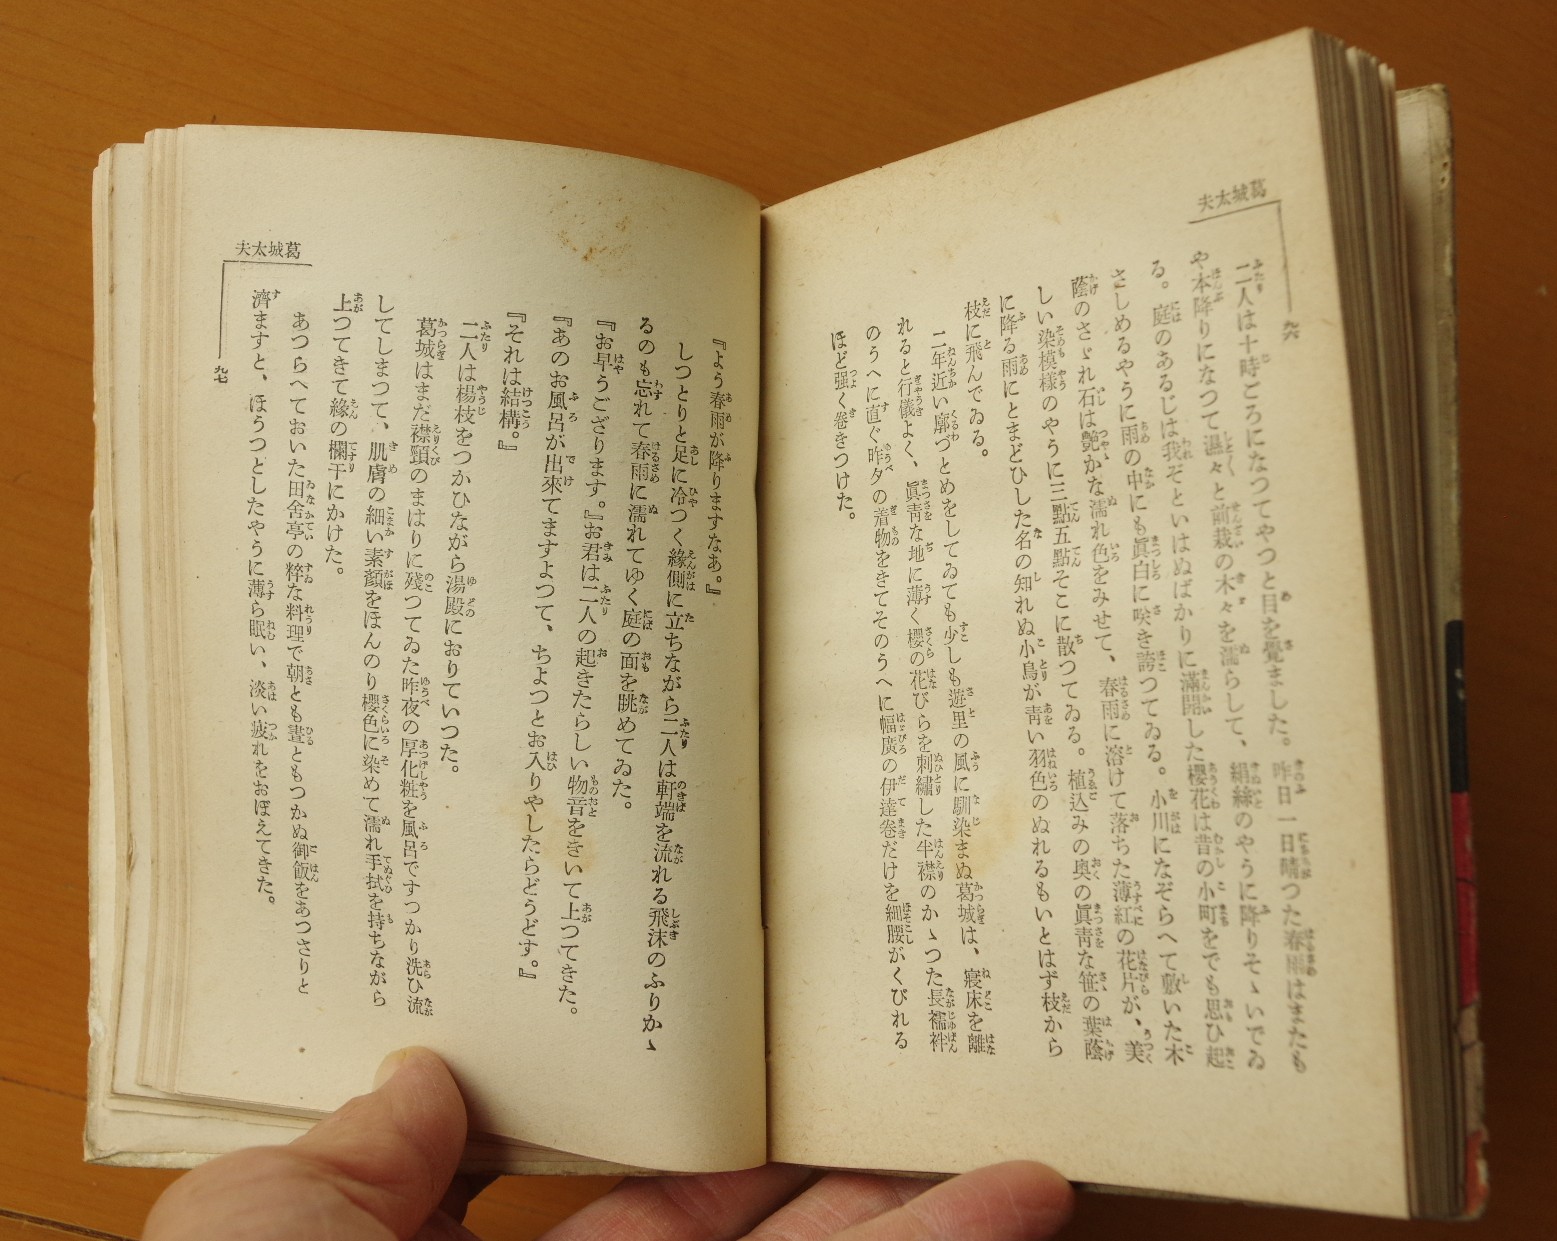 葛城太夫
九六
二人は十時ごろになつてやつと目を覺ました。昨日一日晴つた春雨はまたも
や本降りになつて濕々と前栽の木々を濡らして、絹絲のやうに降りそゝいでゐ
る。庭のあるじは我ぞといはぬばかりに滿開した櫻花は昔の小町をでも思ひ起
さしめるやうに雨の中にも眞白に咲き誇つてゐる。小川になぞらへて敷いた木
蔭のさゞれ石は艶かな濡れ色をみせて、春雨に溶けて落ちた薄紅の花片が、美
しい染模樣のやうに三點五點そこに散つてゐる。植込みの奥の眞靑な笹の葉蔭
に降る雨にとまどひした名の知れぬ小鳥が靑い羽色のぬれるもいとはず枝から
枝に飛んでゐる。
二年近い廓づとめをしてゐても少しも遊里の風に馴染まぬ葛城は、寢床を離
れると行儀よく、眞靑な地に薄く櫻の花びらを刺繡した半襟のかゝつた長襦袢
のうへに直ぐ昨夕の着物をきてそのうへに幅廣の伊達卷だけを細腰がくびれる
ほど强く卷きつけた。
葛城太夫
九七
『よう春雨が降りますなあ。』
しつとりと足に冷つく緣側に立ちながら二人は軒端を流れる飛沫のふりかゝ
るのも忘れて春雨に濡れてゆく庭の面を眺めてゐた。
『お早うござります。』お君は二人の起きたらしい物音をきいて上つてきた。
『あのお風呂が出來てますよつて、ちよつとお入りやしたらどうどす。』
『それは結構。』
二人は楊枝をつかひながら湯殿におりていつた。
葛城はまだ襟頸のまはりに殘つてゐた昨夜の厚化粧を風呂ですつかり洗ひ流
してしまつて、肌膚の細い素顏をほんのり櫻色に染めて濡れ手拭を持ちながら
上つてきて緣の欄干にかけた。
あつらへておいた田舍亭の粹な料理で朝とも晝ともつかぬ御飯をあつさりと
濟ますと、ほうつとしたやうに薄ら眠い、淡い疲れをおぼえてきた。